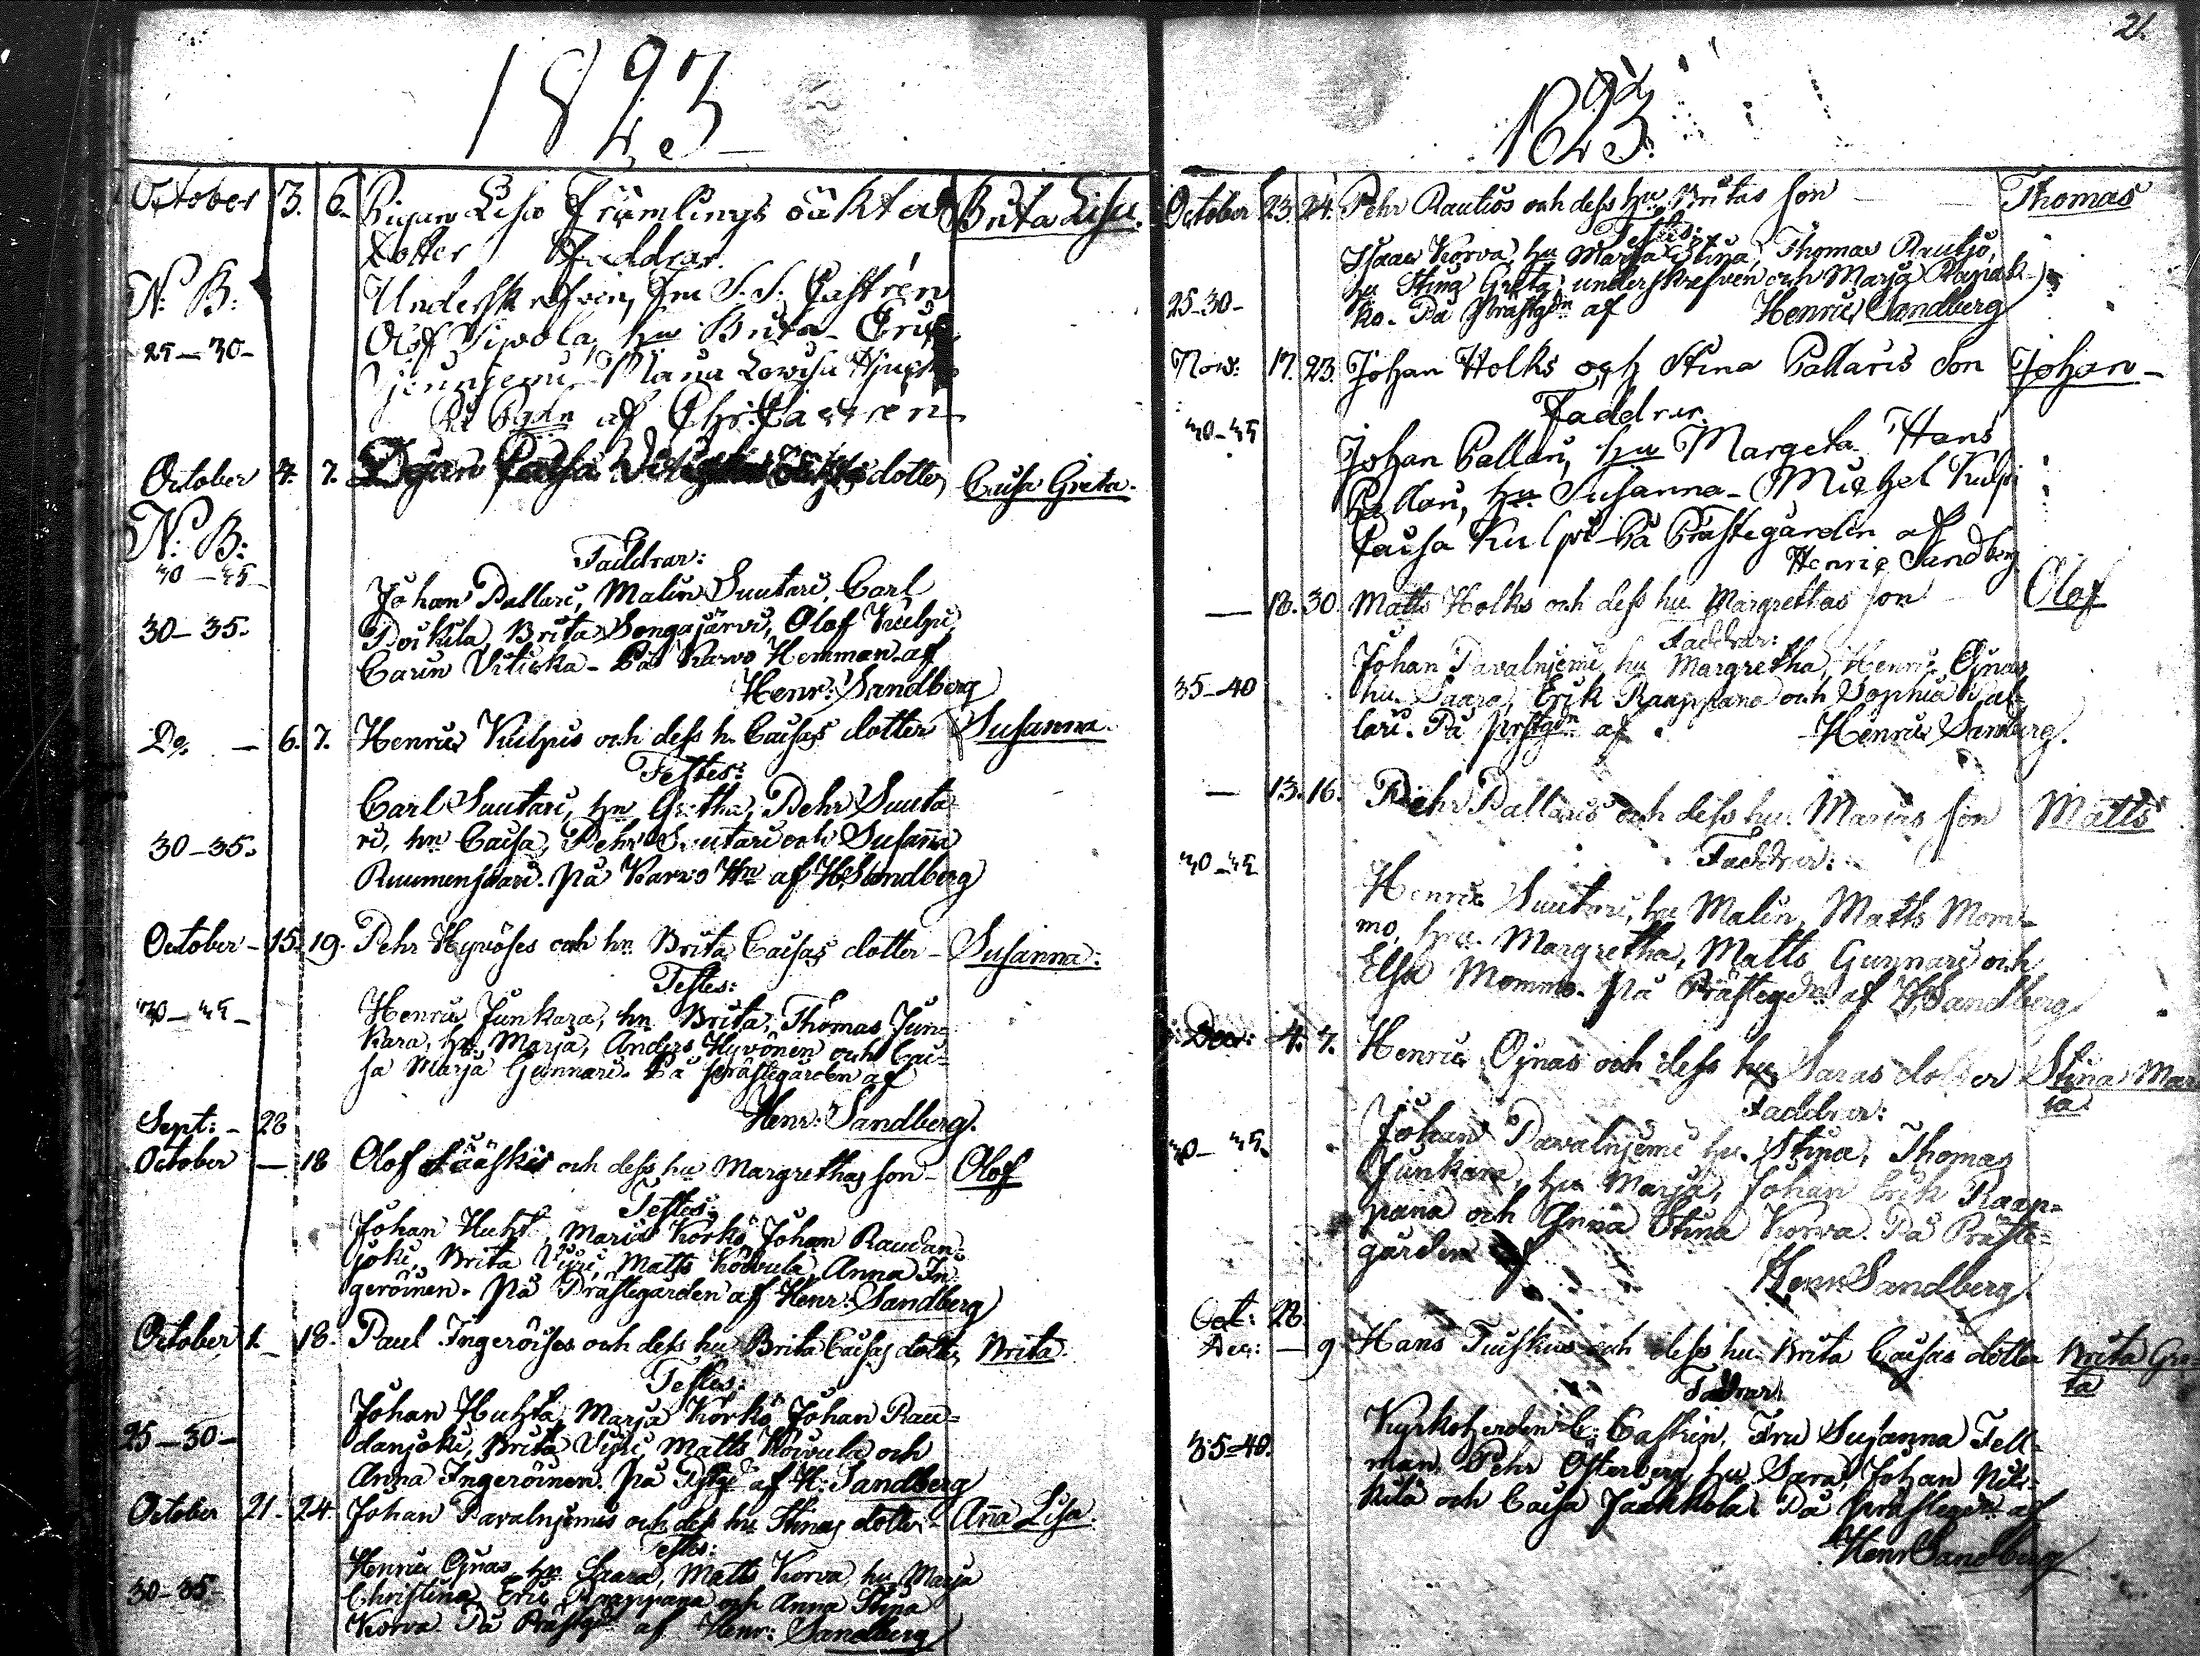 1823
October 3. 6. Pigan Lisa Främlings oäkta Brita Lisa.
dotter Faddrar.
N: B: Underskrefven, Fru S. S. Castrén
Olof Sipola, hu Brita - Eric
25-30-
Maria Lowisa
På af Chr: Castrén
October 4. 7. Pigan Caisa dotter Caisa Greta.
N: B:
Faddrar:
40-45-
Johan Pallari, Malin Suutari, Carl
30-35. Poikila, Brita Songajärvi, Olof Kulpi,
Carin Viticka - På Karvo Hemman af
Henr: Sandberg
Do. - 6. 7. Henric Kulpis och dess h. Caisas dotter Susanna.
Testes:
Carl Suutari, hn Gretha, Pehr Suuta
30-35. ri, hn Caisa, Pehr Suutari och Susana
Ruumensaari. på Karvo Hn af H: Sandberg
October - 15. 19. Pehr Hyvöses och hn Brita Caisas dotter - Susanna:
Testes:
40-45- Henric Junkara, hn Brita, Thomas Jun-
kara, hn Marja, Anders Hyvönen och Cai-
sa Marja Gunnari. På prästegården af
Henr: Sandberg.
Sept: - 28
October - 18 Olof Lääskis och dess hu Margrethas son - Olof
Testes:
Johan Huht, Maria Korkö, Johan Raudan-
joki, Brita Viiri, Matts Koivula, Anna In-
geröinen. på Prästegården af Henr: Sandberg
October 1. - 18. Paul Ingeröises och dess hu Brita Caisas dotter, Brita.
Testes:
Johan Huhta, Marja Korkö, Johan Rau-
25-30- danjoki, Brita Viiri, Matts Koivula och
Anna Ingeröinen. på af H: Sandberg
October 21. 24. Johan Pavalnjemis och dess hu Stinas dotter - Aña Lisa.
Testes:
Henric Ojnas, hn Saara, Matts Korva, hu Marja
30-35- Christina, Eric Raappana och Anna Stina
Korva. På Prästgdn af Henr: Sandberg
21.
1823.
October 23. 24. Pehr Rautios och dess hu Britas son - Thomas
Testes:
Isaac Korva, hu Marja Stina, Thomas Rautjo,
hu Stina Greta, underskrefven och Marja
25-30- ko. På Prästgdn af Henric Sandberg
Nov: 17. 23. Johan Holks och Stina Pallaris son Johan -
Faddrar.
40-45 Johan Pallari, hu Margeta. Hans
Pallari, hu Susanna - Michel Kulpi
Caisa Kulpi - På Prästegården af
Henric Sandberg
- 18. 30. Matts Holks och dess hu Margrethas son - Olof
Faddrar:
Johan Pavalnjemi, hu Margretha, Henric Ojnas,
35-40 hu Saara, Erik Raappana och Sophia Pal-
lari. På prstgdn af Henric Sandberg.
- 13. 16. Pehr Pallaris och dess hu Marias son Matts
Faddrar:
40-45 Henric Suutari, hu Malin, Matts Mom-
mo, hu. Margretha, Matts Gunnari och
Elsa Mommo. på Prästegdn af H: Sandberg
Dec: 4. 7. Henric Ojnas och dess hu Saras dotter Stina Mar
Faddrar: ia.
40-45. Johan Pavalnjemi hu. Stina, Thomas
Junkara, hu Marja, Johan Erik Raap-
pana och Anna Stina Korva. På Präste-
gården af
Henr: Sandberg
Oct: 28.
Dec: - 9 Hans Tuiskus och dess hu Brita Caisas dotter Brita Gre
Fadrar: ta
35-40. Kyrkoherden C: Castrén, Fru Susanna Fell-
man, Pehr Österberg, hu Sara, Johan Nik-
kilä och Caisa Jaakkola. På prästegdn af
Henr Sandberg